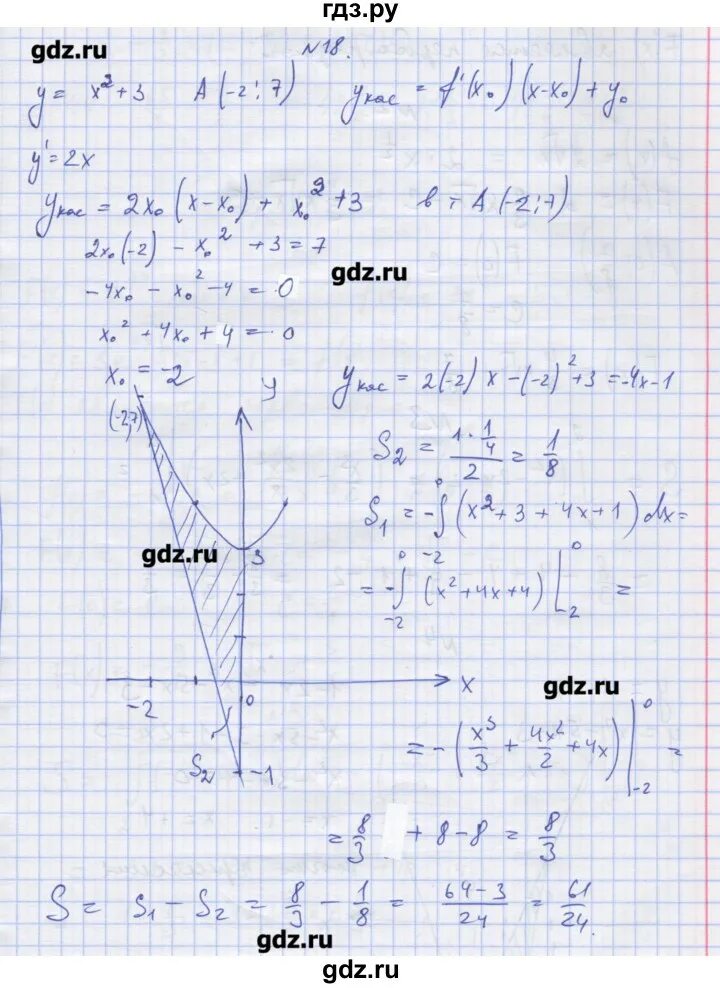 гдз.ру
gdz.ru
№18.
y = x² + 3 A(-2; 7) yкас = f'(x₀)(x-x₀) + y₀
y' = 2x
yкас = 2x₀(x-x₀) + x₀² + 3 в т A(-2; 7)
2x₀(-2) - x₀² + 3 = 7
gdz.ru
-4x₀ - x₀² - 4 = 0
x₀² + 4x₀ + 4 = 0
x₀ = -2
yкас = 2(-2)x - (-2)² + 3 = -4x-1
y
(-2,7)
S₂ = (1·1/4)/2 = 1/8
S₁ = -∫₋₂⁰ (x² + 3 + 4x + 1) dx =
gdz.ru
3
= -∫₋₂⁰ (x² + 4x + 4) |₋₂⁰ =
x
gdz.ru
-2
0
S₂
-1
= -(x³/3 + 4x²/2 + 4x) |₋₂⁰ =
= 8/3 + 8 - 8 = 8/3
S = S₁ - S₂ = 8/3 - 1/8 = (64-3)/24 = 61/24.
gdz.ru
gdz.ru